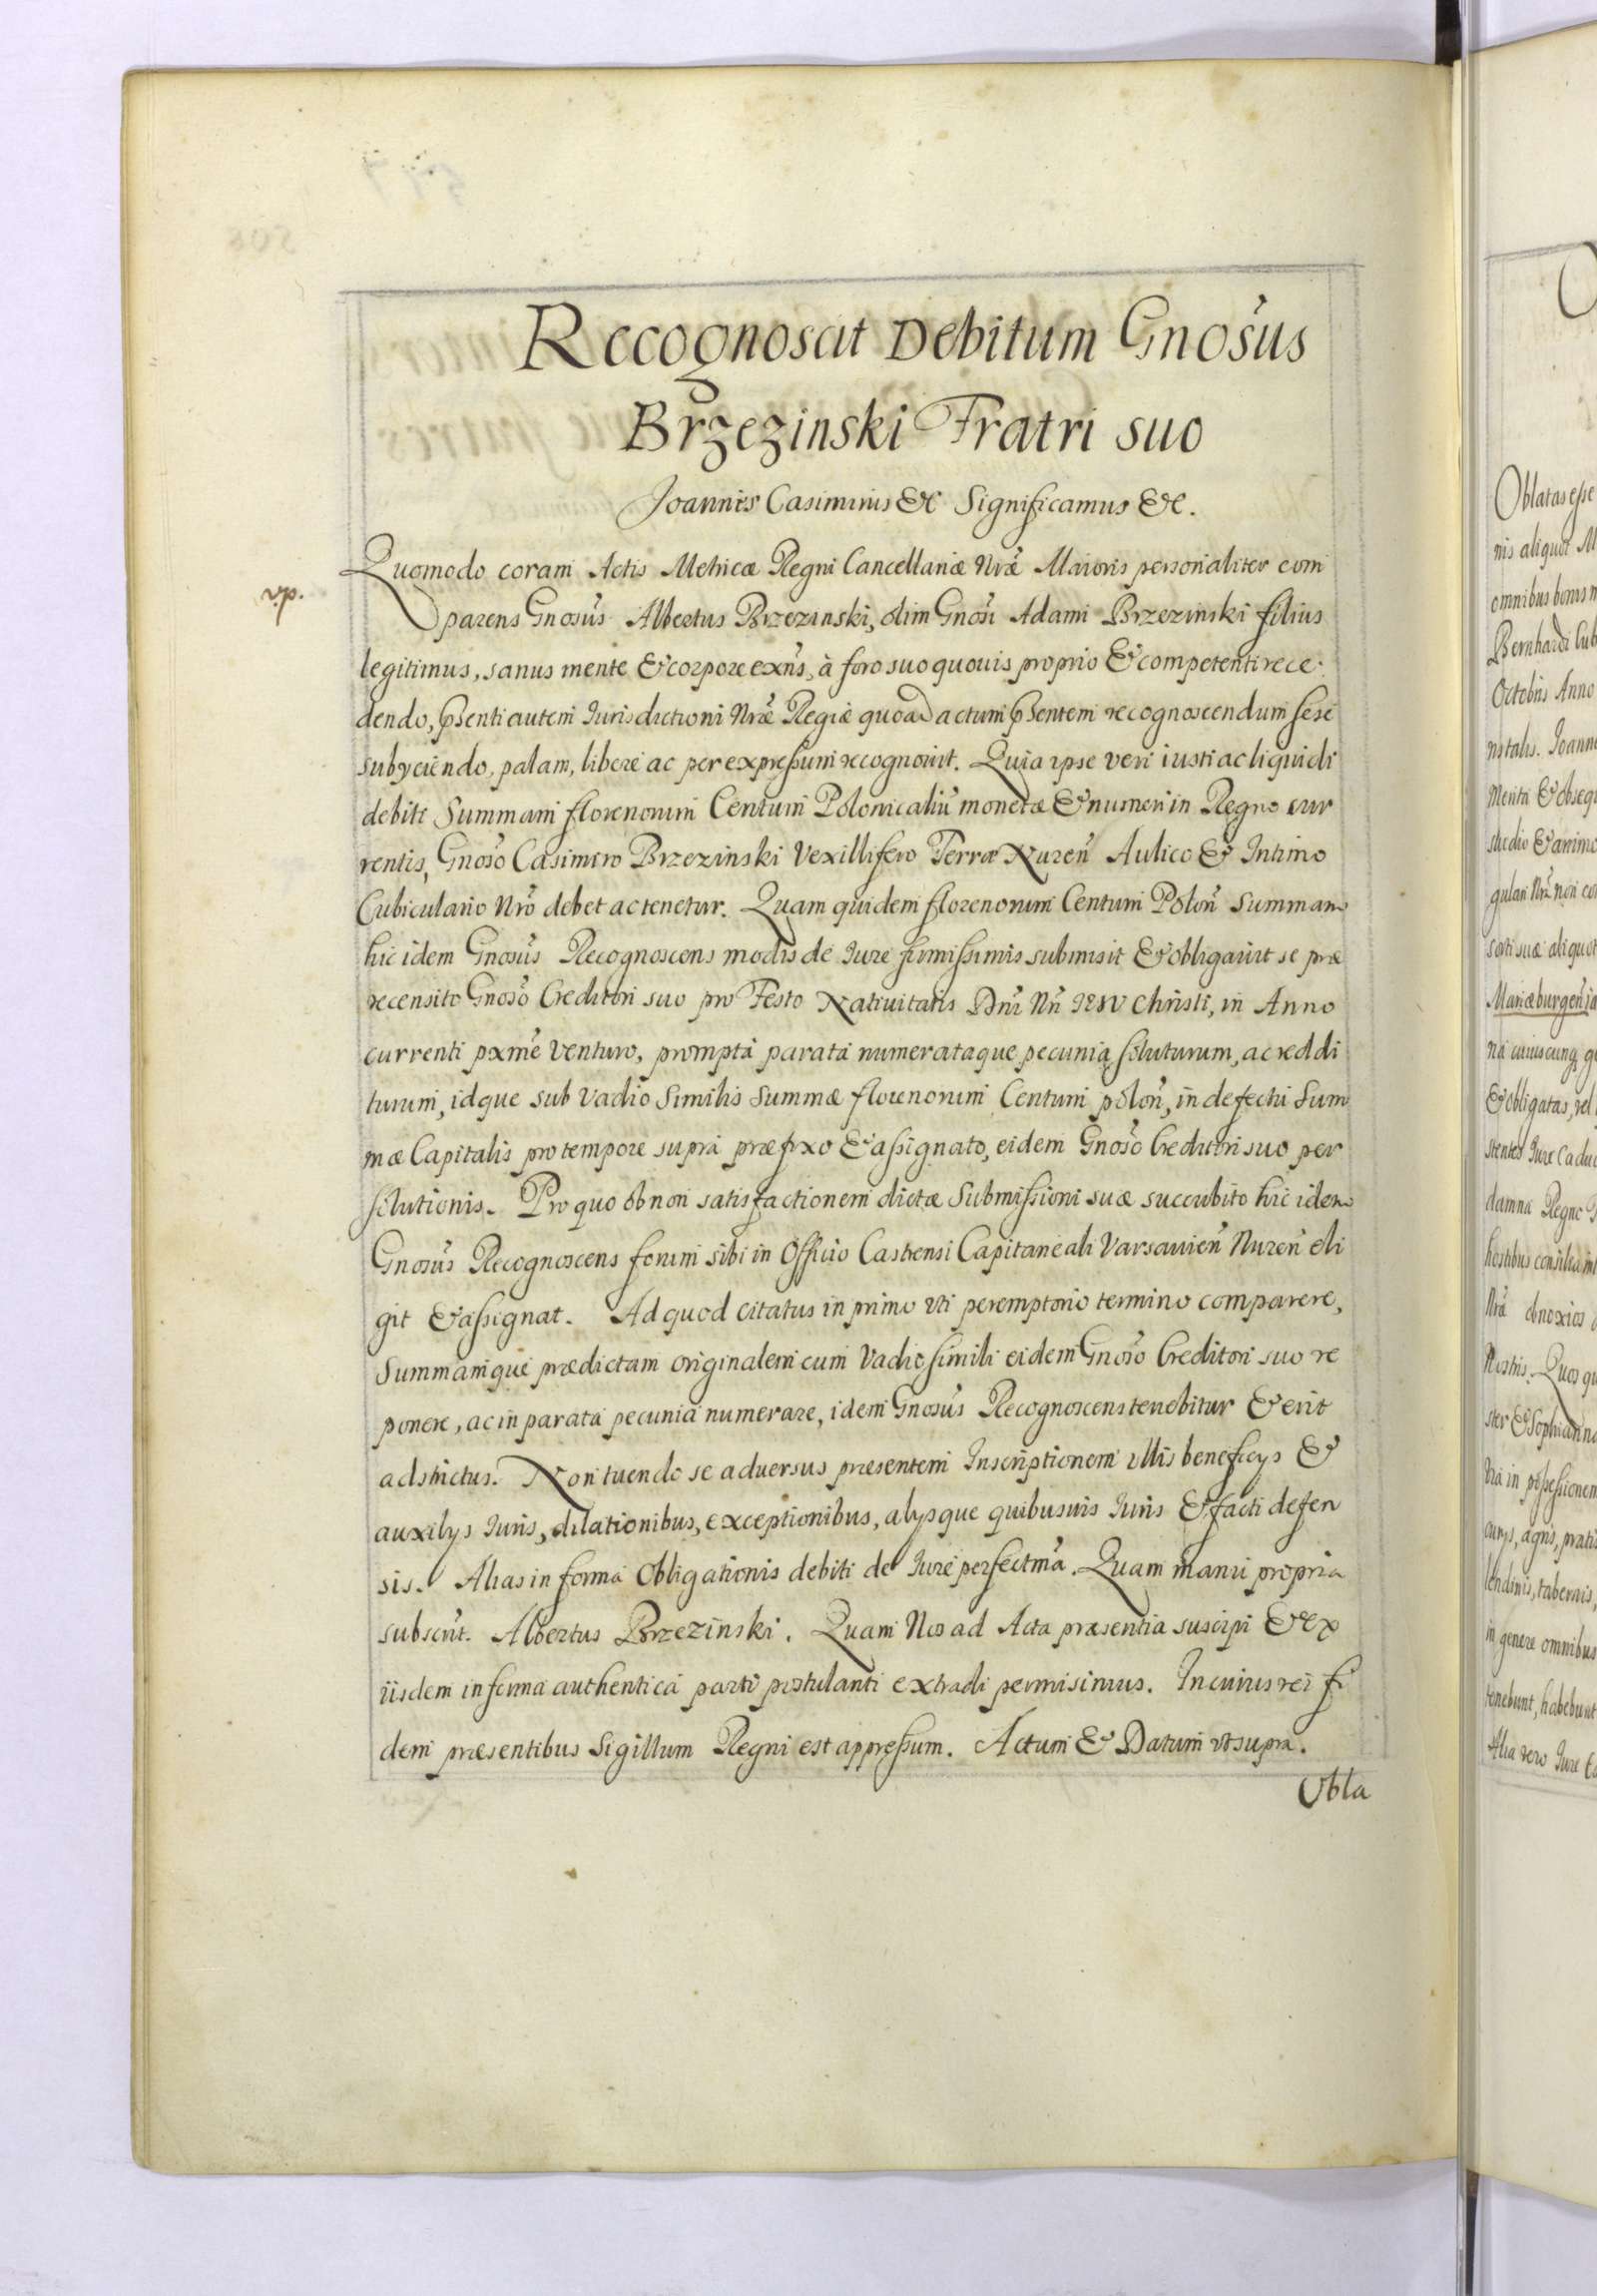 Recognoscit Debitum Gnosus
Brzezinski Fratri suo
Joannes Casimirus &c Significamus &c.
Quomodo coram Actis Metricæ Regni Cancellariæ Nræ Maioris personaliter com
parens Gnosus Albertus Brzezinski, olim Gnosi Adami Brzezinski filius
legitimus, sanus mente & corpore exns, à foro suo quouis proprio & competenti rece
dendo, pñsenti autem Jurisdictioni Nræ Regiæ quoad actum pñsentem recognoscendum sese
subyciendo, palam, libere ac per expressum recognouit. Quia ipse veri iusti ac liquidi
debiti Summam florenorum Centum Polonicaliũ monetæ & numeri in Regno cur
rentis, Gnoso Casimiro Brzezinski Vexillifero Terræ Nureñ Aulico & Intimo
Cubiculario Nro debet ac tenetur. Quam quidem florenorum Centum Poloñ Summam
hic idem Gnosus Recognoscens modis de Jure firmissimis submisit & obligauit se præ
recensito Gnoso Creditori suo pro Festo Natiuitatis Dñi Nñ IESV Christi, in Anno
currenti pxme venturo, promptâ paratâ numerataque pecuniâ soluturum, ac reddi
turum, idque sub vadio similis summæ florenorum Centum poloñ, in defectu Sum
mæ Capitalis pro tempore supra præfixo & assignato, eidem Gnoso Creditori suo per
solutionis. Pro quo ob non satisfactionem dictæ Submissioni suæ succubito hic idem
Gnosus Recognoscens forum sibi in Officio Castrensi Capitaneali Varsauieñ Nureñ eli
git & assignat. Ad quod citatus in primo vti peremptorio termino comparere,
Summamque prædictam originalem cum Vadio simili eidem Gnoso Creditori suo re
ponere, ac in parata pecunia numerare, idem Gnosus Recognoscens tenebitur & erit
adstrictus. Non tuendo se aduersus præsentem Inscriptionem vllis beneficys &
auxilys Juris, dilationibus, exceptionibus, alysque quibusuis Juris & facti defen
sis. Alias in forma Obligationis debiti de Jure perfectma. Quam manu propria
subscrit. Albertus Brzezinski. Quam Nos ad Acta præsentia suscipi & ex
iisdem in forma authentica parti postulanti extradi permisimus. In cuius rei fi
dem præsentibus Sigillum Regni est appressum. Actum & Datum vt supra.
Obla
Oblatas esse
nis aliquot M
omnibus bonis
Bernhardi Cub
Octobris Anno
nstalis. Joann
Meritis & obseq
studio & animo
gulari Nrã non
sorti suæ aliquot
Mariæburgeñ
& obligatas, vel
stentes Jure Cadu
damna Regno
hostibus consilia
Nrã obnoxios
Nostris. Quos qu
ster & Sophiann
tria in possessionem
agris, pratis
taberais,
in genere omnibus
tenebunt, habebunt
Alia vero Jure